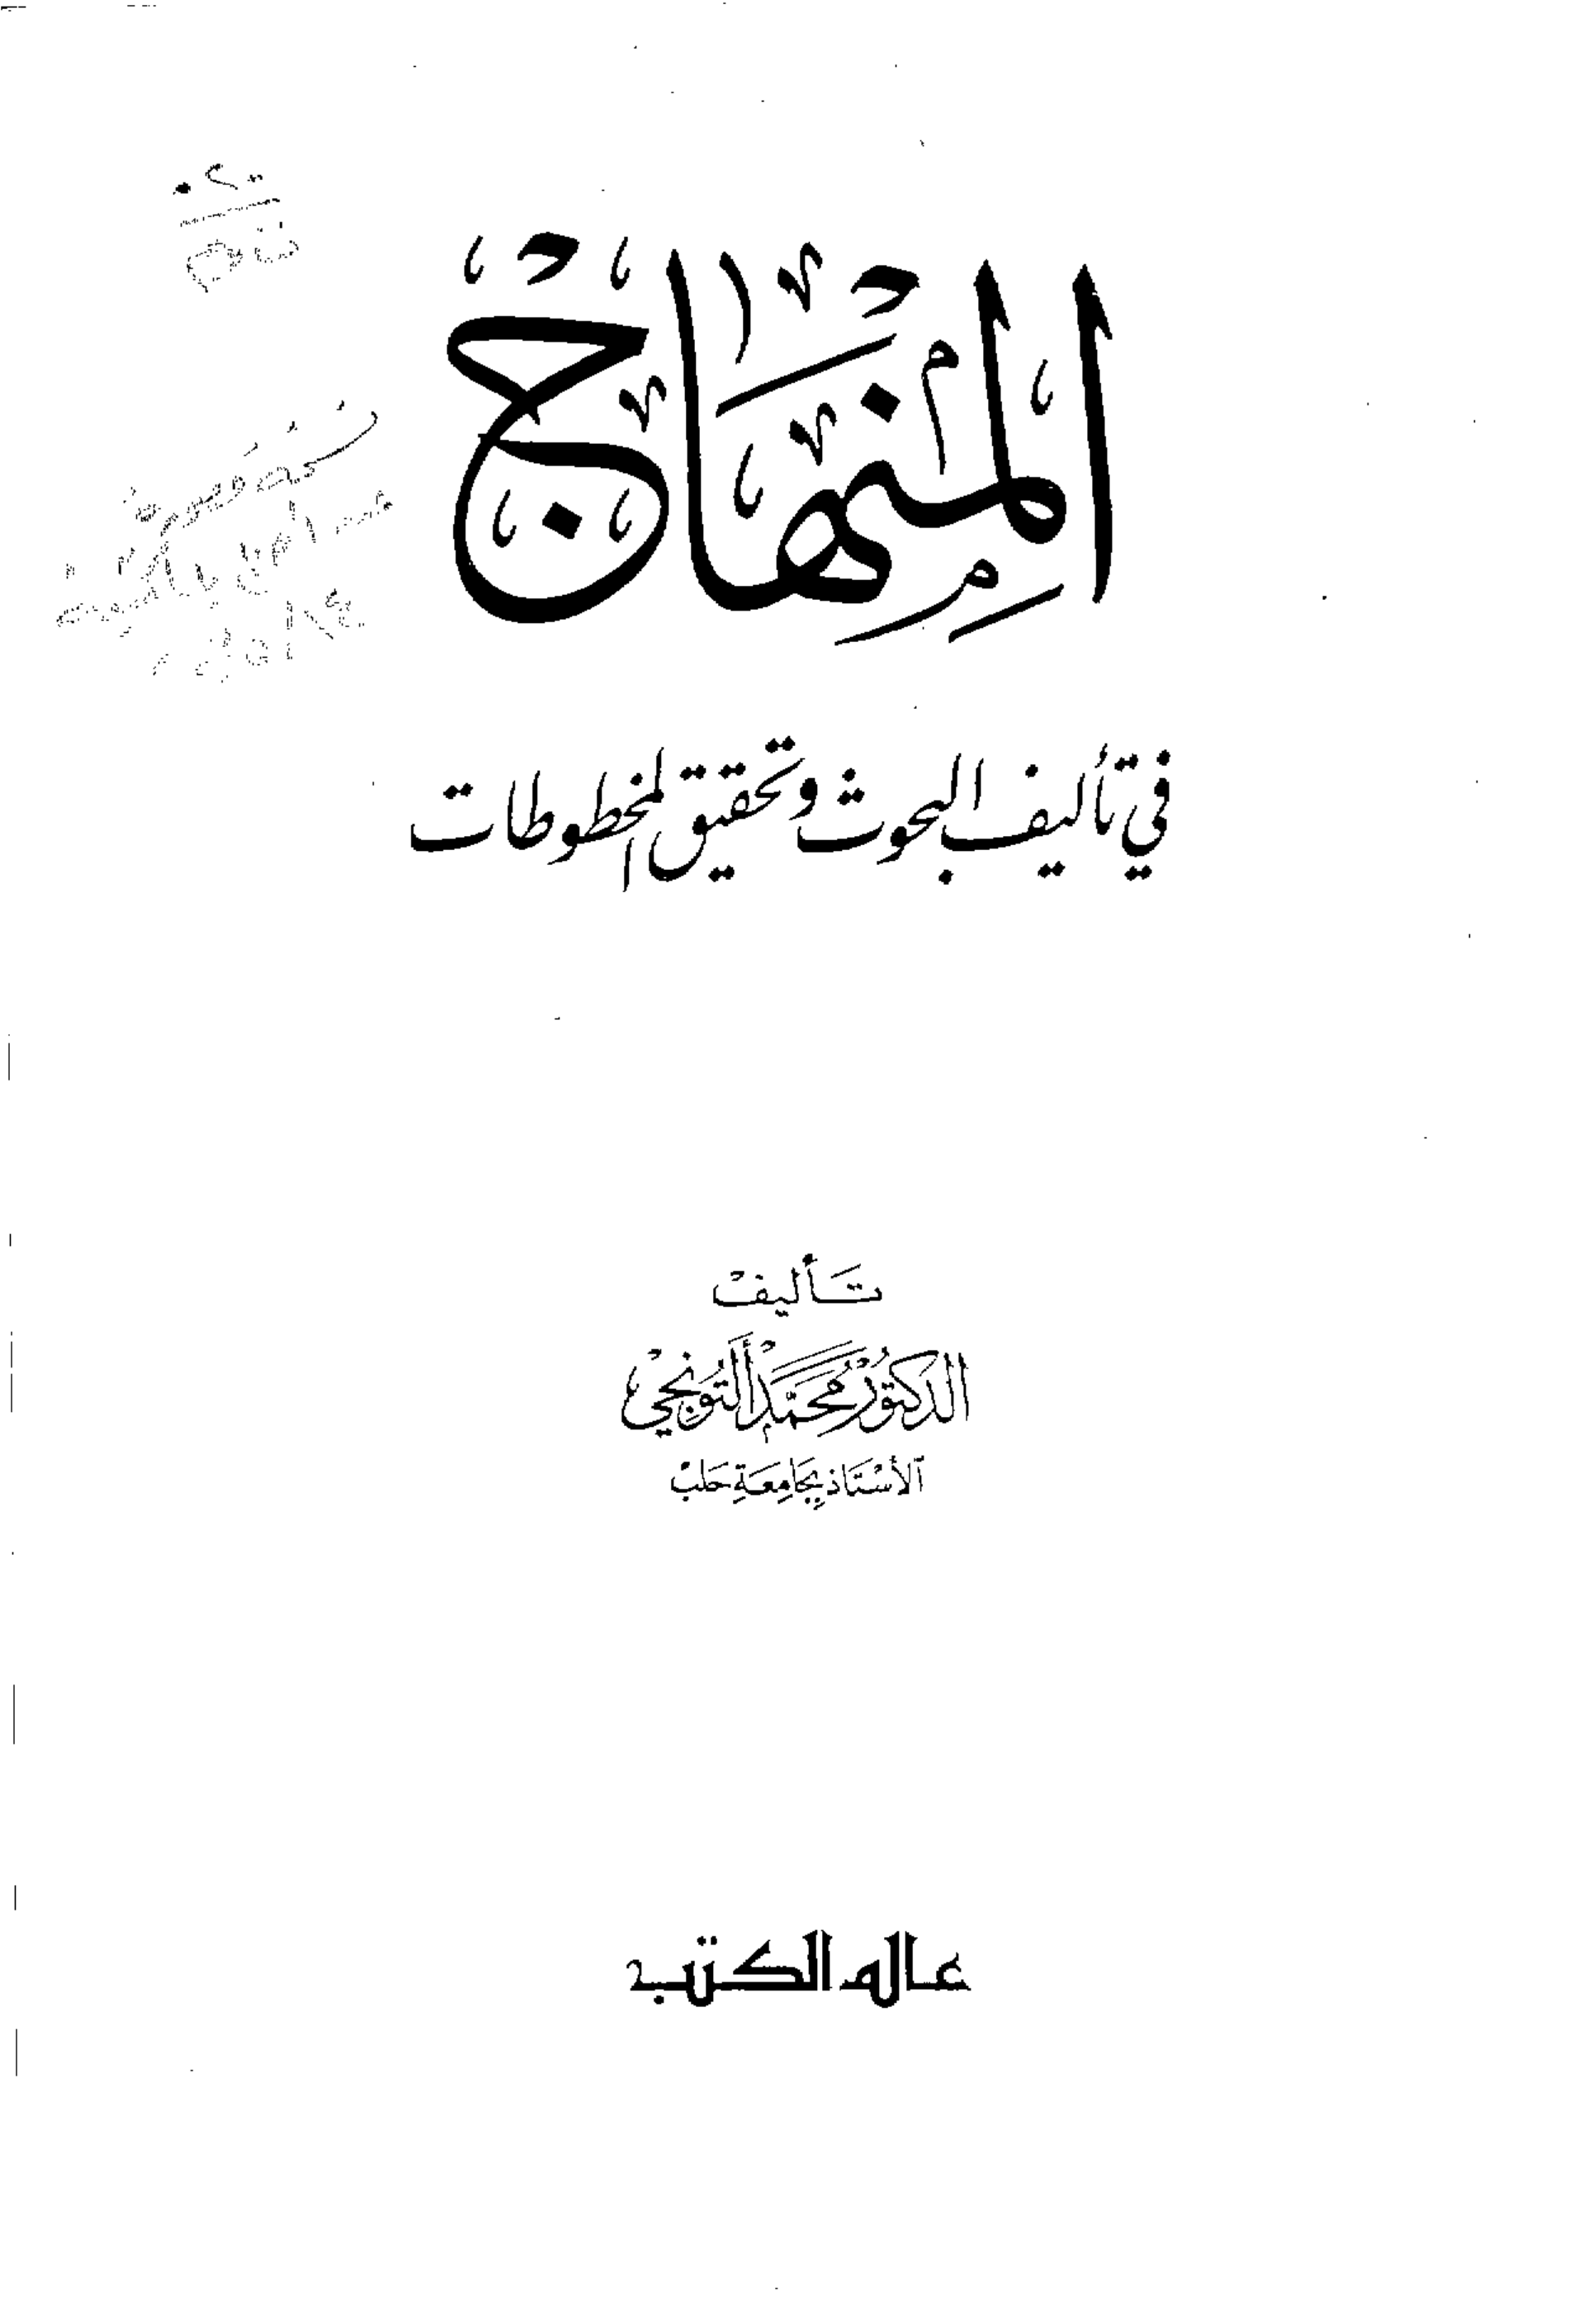 المنهاج
في تأليف البحوث وتحقيق المخطوطات
تأليف
الدكتور محمد ألتونجي
الأستاذ بجامعة حلب
عالم الكتب